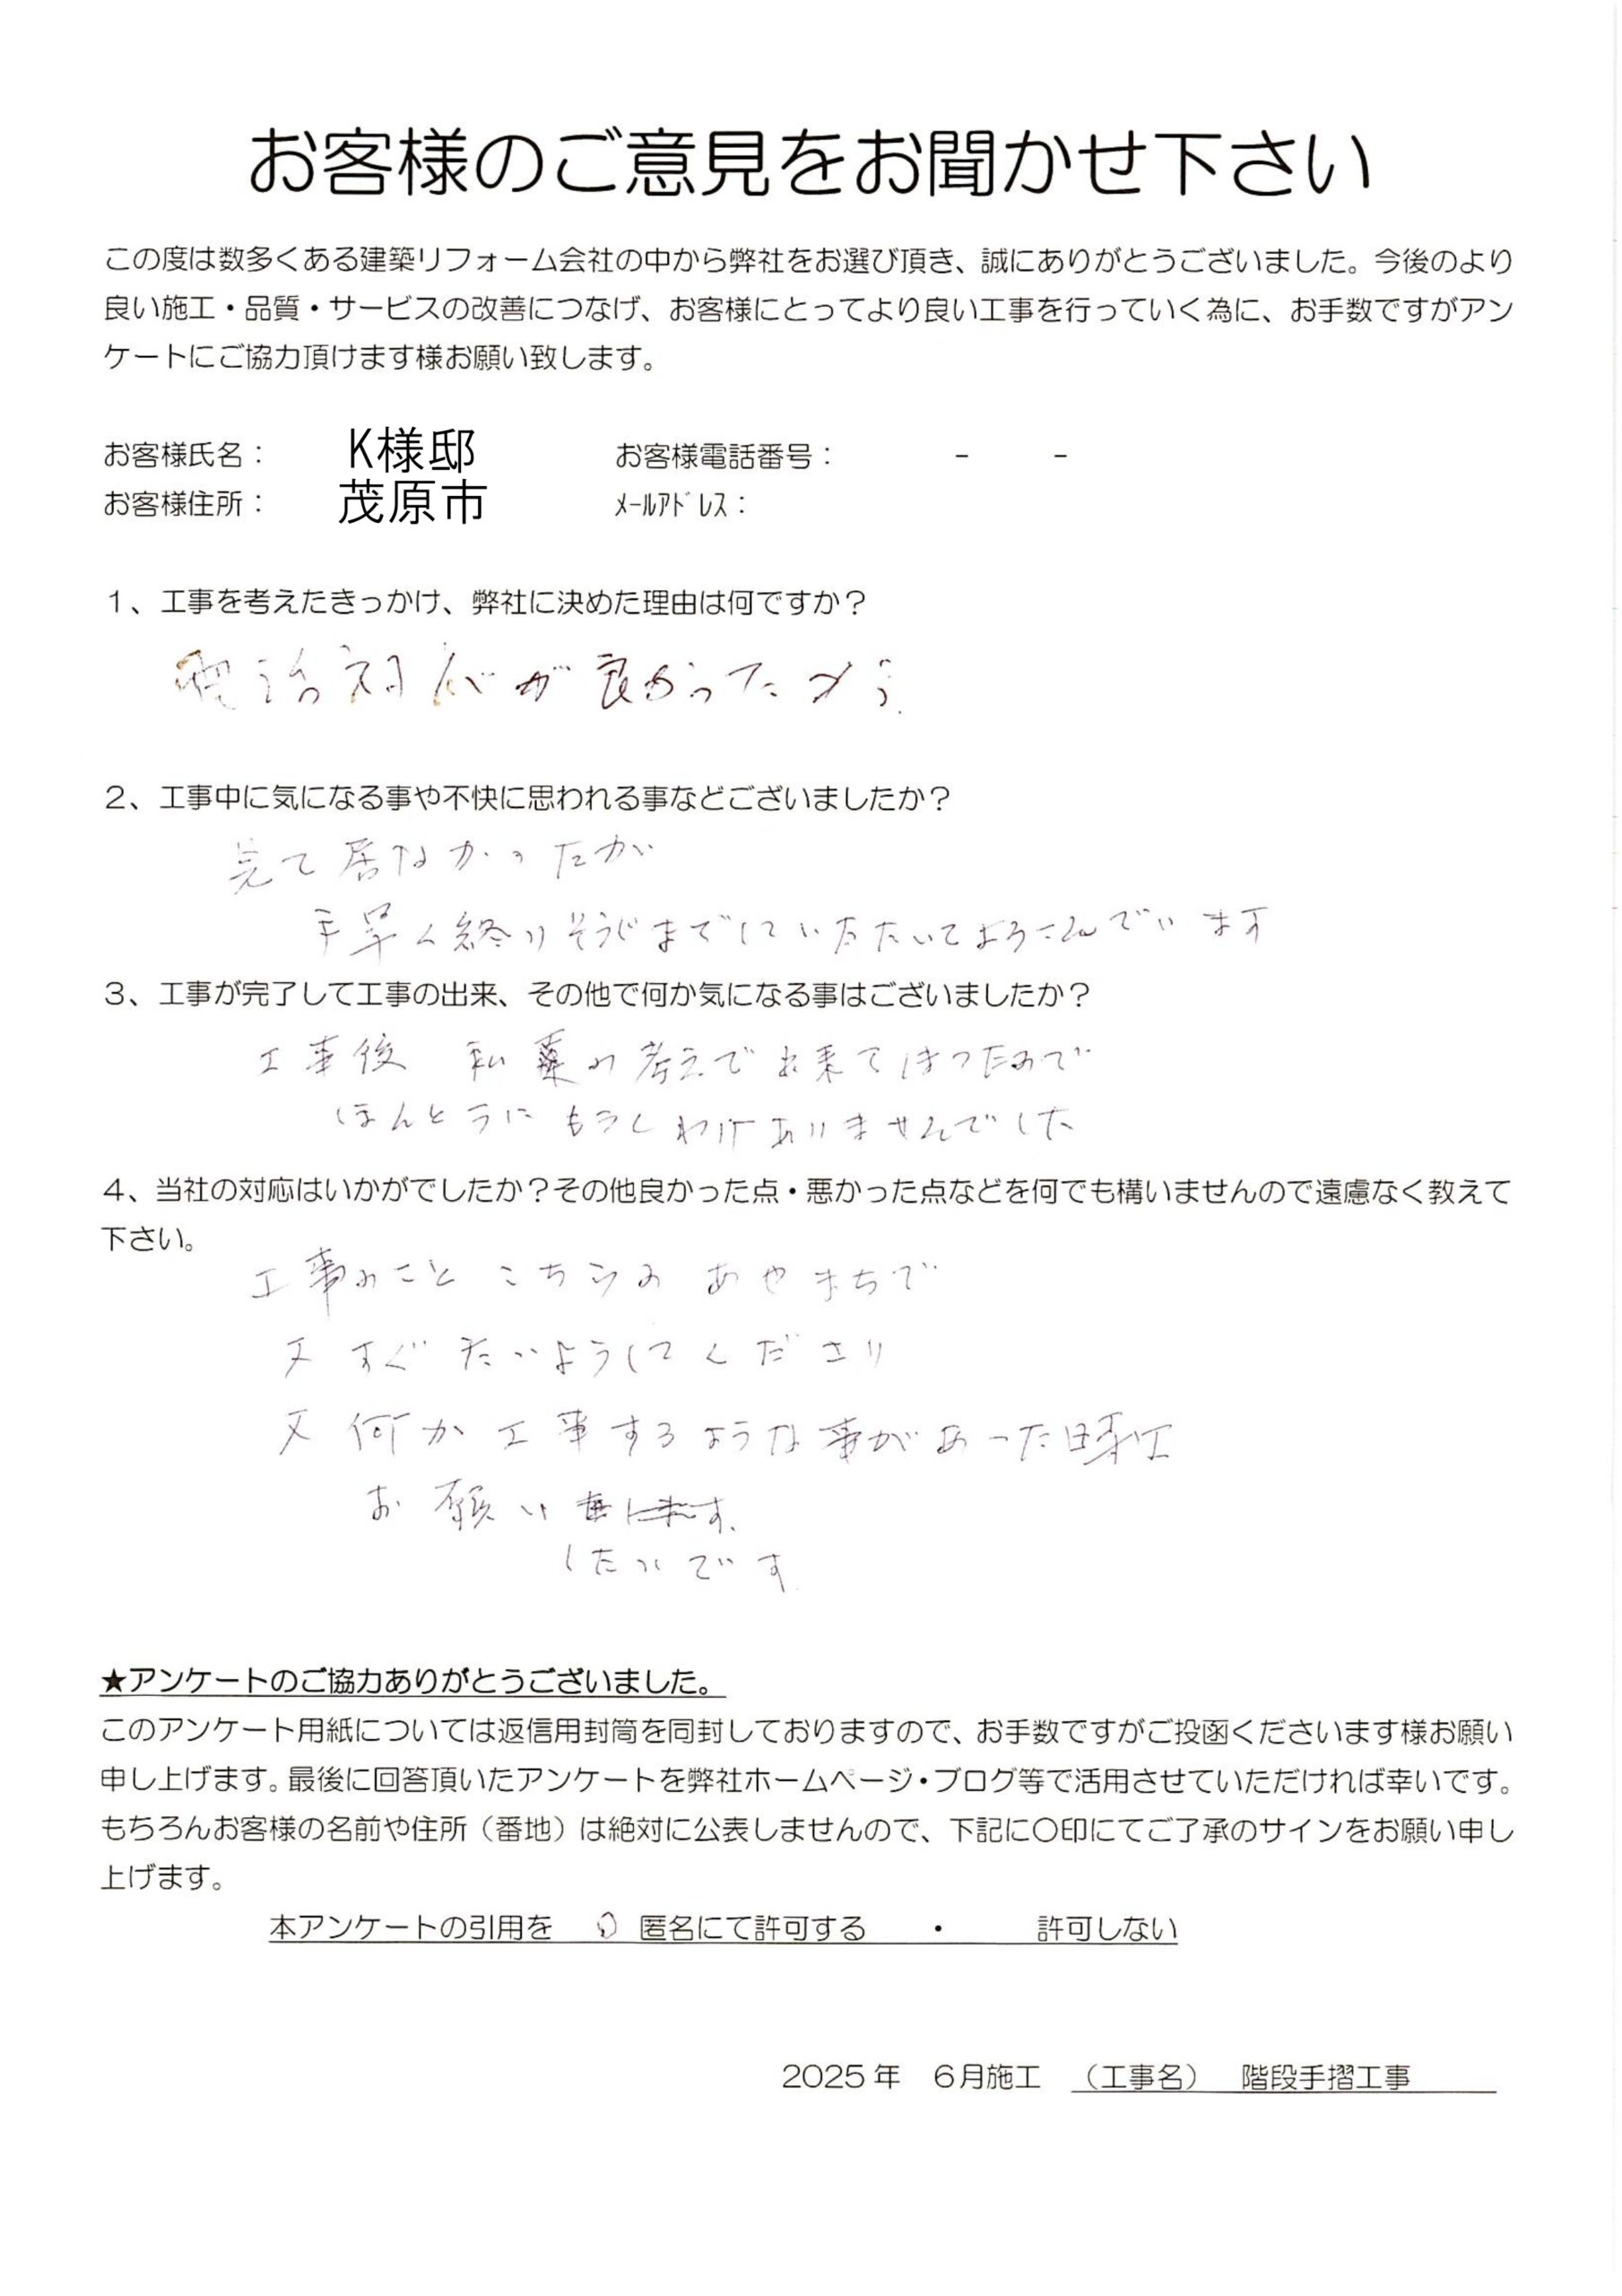 お客様のご意見をお聞かせ下さい
この度は数多くある建築リフォーム会社の中から弊社をお選び頂き、誠にありがとうございました。今後のより
良い施工・品質・サービスの改善につなげ、お客様にとってより良い工事を行っていく為に、お手数ですがアン
ケートにご協力頂けます様お願い致します。
お客様氏名： K様邸 お客様電話番号： - -
お客様住所： 茂原市 ﾒｰﾙｱﾄﾞﾚｽ：
1、工事を考えたきっかけ、弊社に決めた理由は何ですか？
電話対応が良かったから.
2、工事中に気になる事や不快に思われる事などございましたか？
見て居なかったが
手早く終りそうじまでしていただいてよろこんでいます
3、工事が完了して工事の出来、その他で何か気になる事はございましたか？
工事後 私の考えで出来てしまったので
ほんとうにもうしわけありませんでした
4、当社の対応はいかがでしたか？その他良かった点・悪かった点などを何でも構いませんので遠慮なく教えて
下さい。
工事のこと こちらの あやまちで
又 すぐ たいようしてくださり
又 何か工事するような事があった時は
お願い
したいです
★アンケートのご協力ありがとうございました。
このアンケート用紙については返信用封筒を同封しておりますので、お手数ですがご投函くださいます様お願い
申し上げます。最後に回答頂いたアンケートを弊社ホームページ・ブログ等で活用させていただければ幸いです。
もちろんお客様の名前や住所（番地）は絶対に公表しませんので、下記に〇印にてご了承のサインをお願い申し
上げます。
本アンケートの引用を 匿名にて許可する ・ 許可しない
2025年 6月施工 （工事名） 階段手摺工事